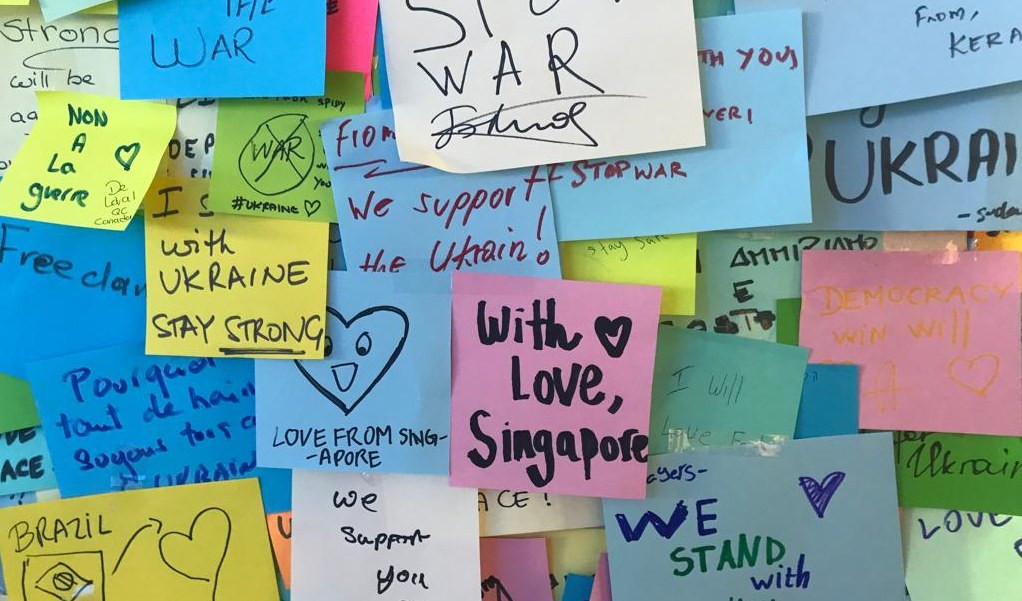 Strong
will be
THE
WAR
WAR
FROM,
KERA
NON
A
La
guerre
De
QC
Canada
WAR
#UKRAINE
From
We support
the Ukrain!
TH YOU
VER!
# STOP WAR
UKRAI
I S
with
UKRAINE
STAY STRONG
Free
stay safe
E
DEMOCRACY
WIN WILL
Pourquoi
tout de
soyous tous
UKRAIN
LOVE FROM SING-
-APORE
With
Love,
Singapore
I Will
for
Ukrain
ACE
BRAZIL
We
Support
you
ACE!
ayers-
WE
STAND
with
LOVE